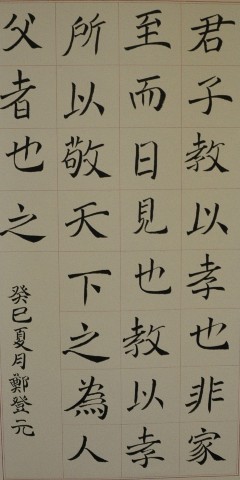 君子教以孝也非家
至而日見也教以孝
所以敬天下之為人
父者也之
癸巳夏月鄭登元